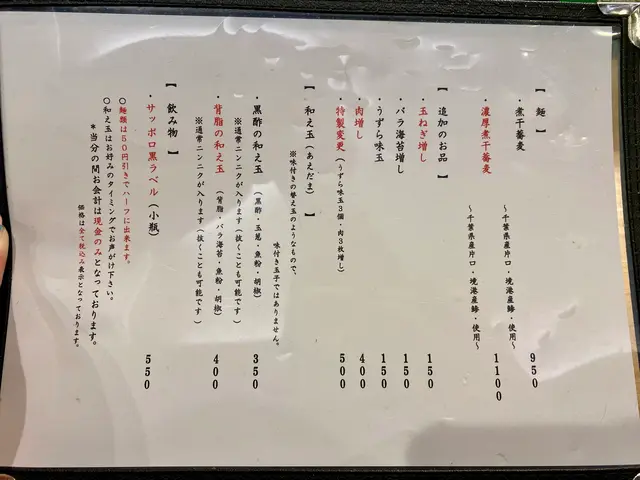 【 麺 】
・煮干蕎麦 ～千葉県産片口・境港産鯵・使用～ 950
・濃厚煮干蕎麦 ～千葉県産片口・境港産鯵・使用～ 1100
【 追加のお品 】
・玉ねぎ増し 150
・バラ海苔増し 150
・うずら味玉 150
・肉増し 400
・特製変更（うずら味玉3個・肉3枚増し） 500
【 和え玉（あえだま） 】
※味付きの替え玉のようなもので、
味付き玉子ではありません。
・黒酢の和え玉（黒酢・玉葱・魚粉・胡椒） 350
※通常ニンニクが入ります（抜くことも可能です）
・背脂の和え玉（背脂・バラ海苔・魚粉・胡椒） 400
※通常ニンニクが入ります（抜くことも可能です）
【 飲み物 】
・サッポロ黒ラベル（小瓶） 550
○麺類は50円引きでハーフに出来ます。
○和え玉はお好みのタイミングでお声がけ下さい。
*当分の間お会計は現金のみとなっております。
価格は全て税込み表示となっております。